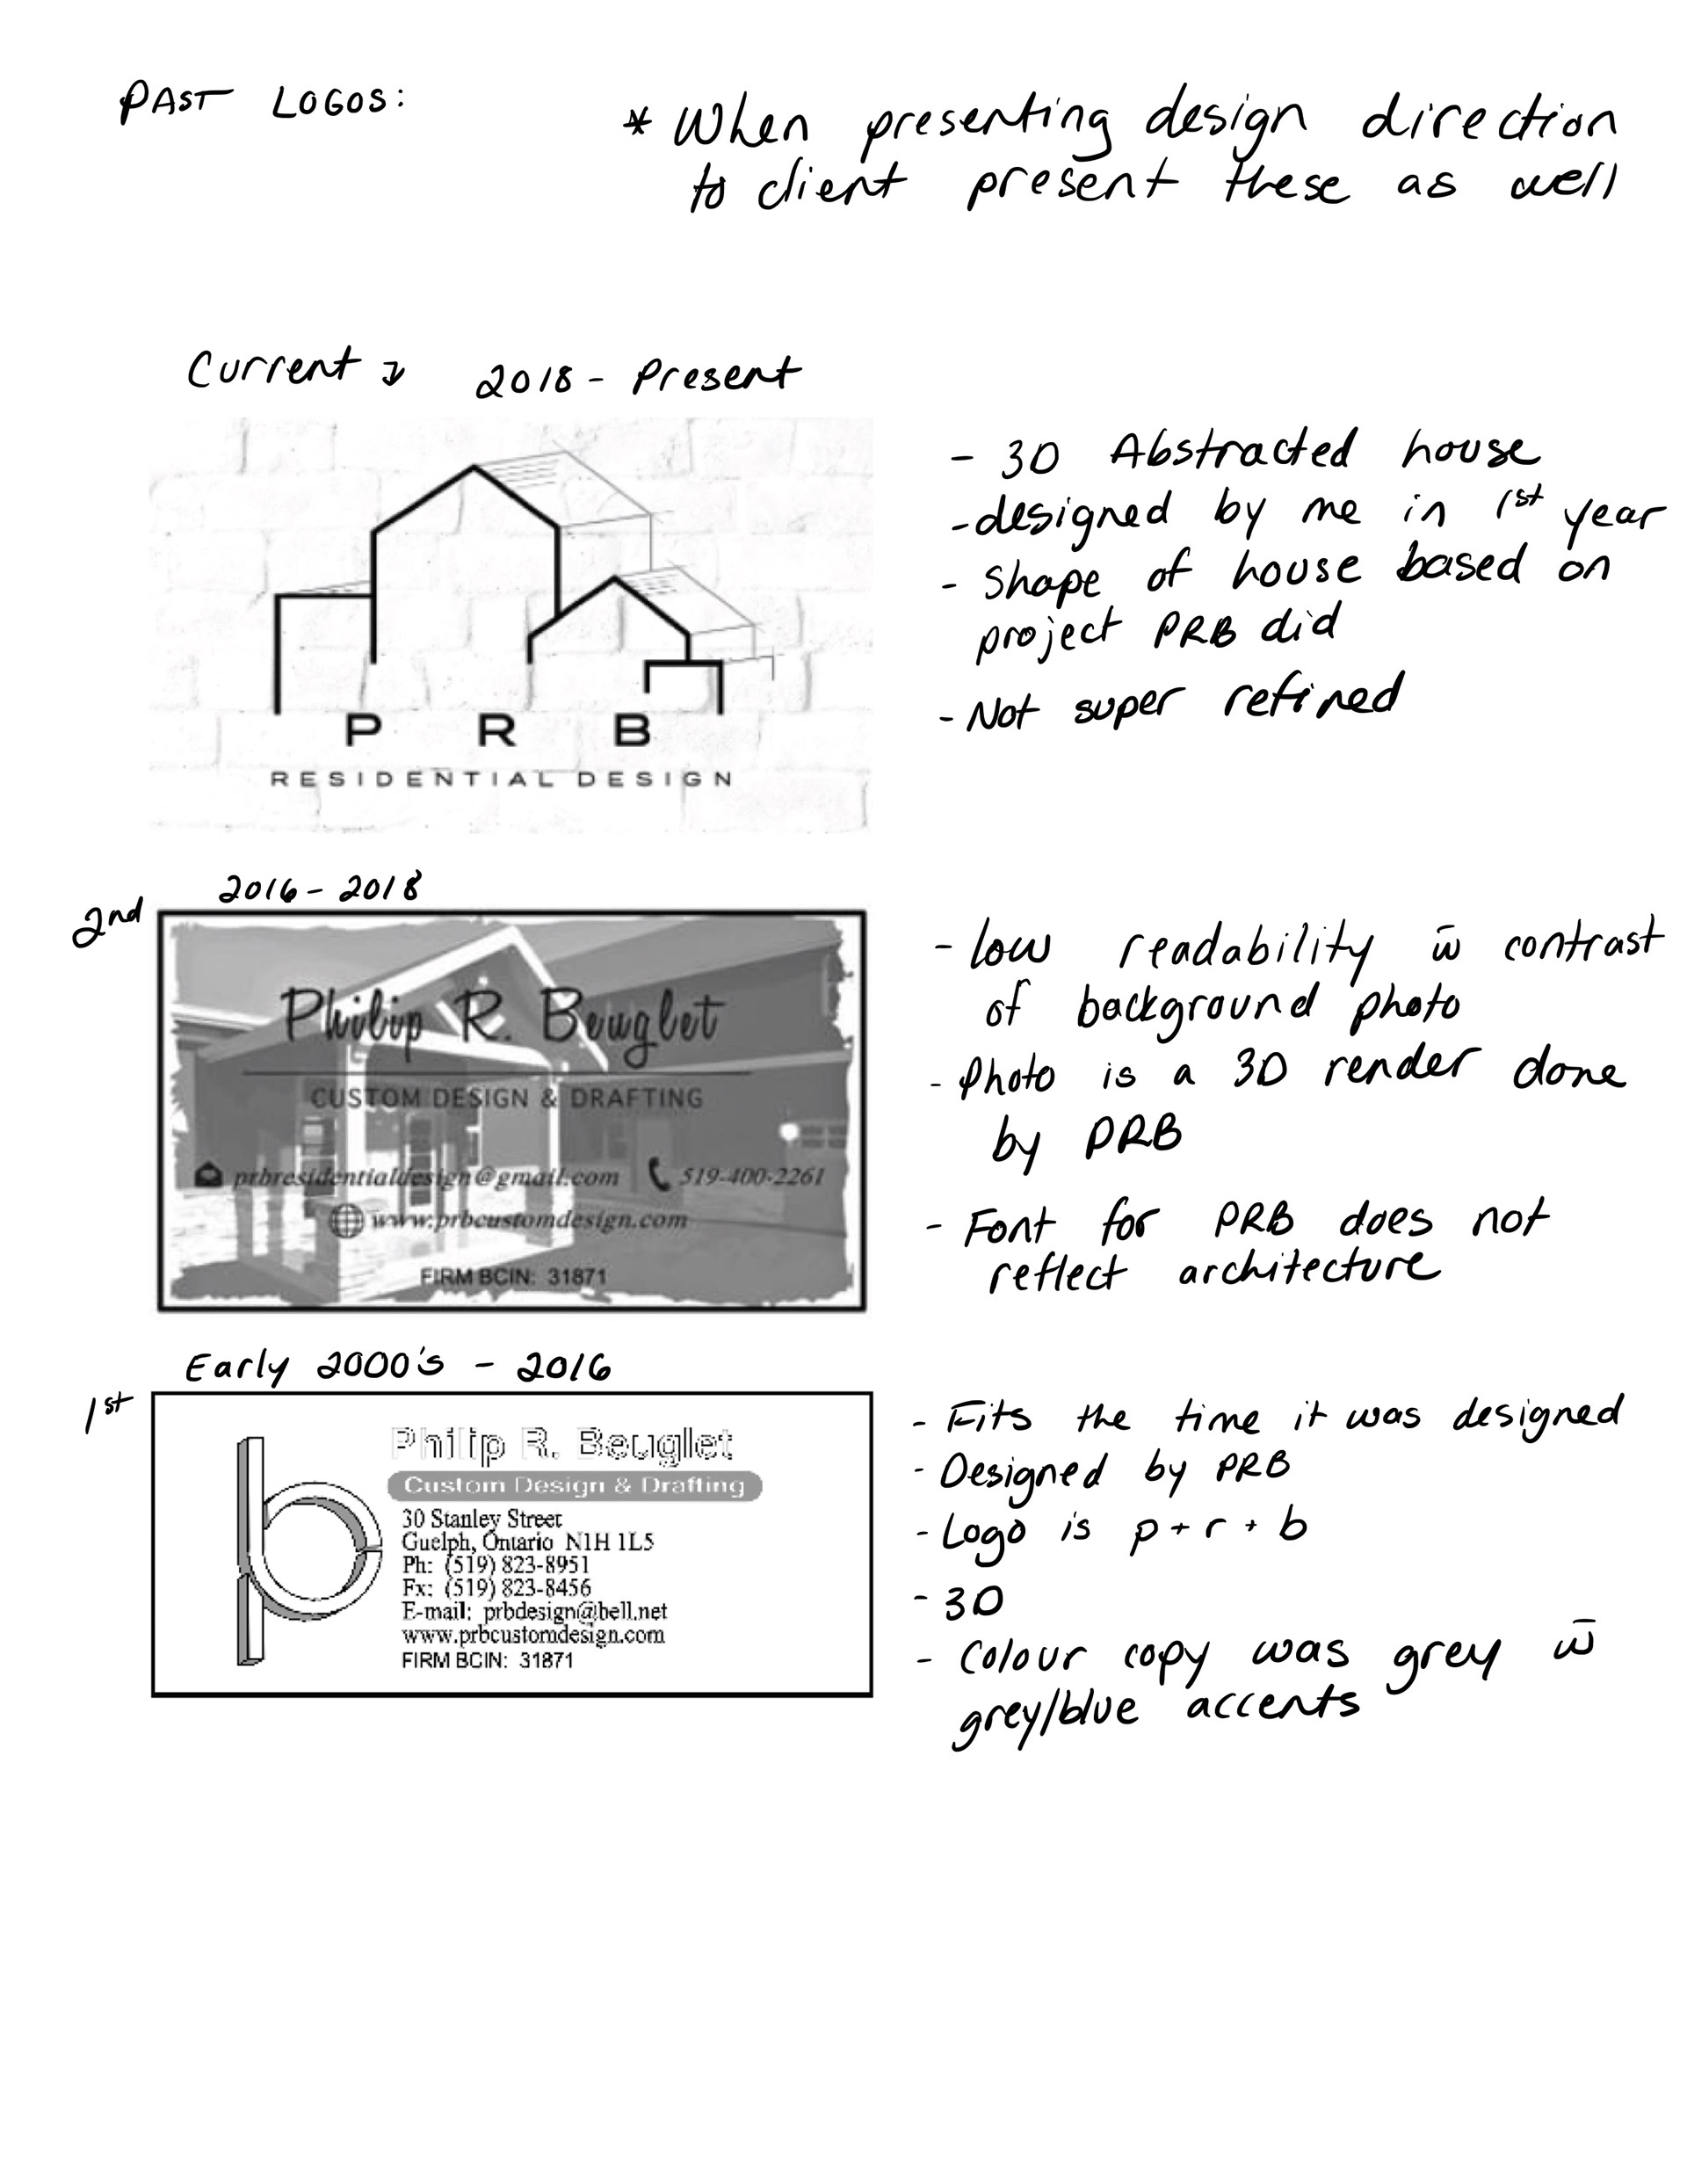 PAST LOGOS:
* When presenting design direction
to client present these as well
Current ↴ 2018 - Present
P R B
RESIDENTIAL DESIGN
- 3D Abstracted house
- designed by me in 1st year
- Shape of house based on
project PRB did
- Not super refined
2nd
2016 - 2018
Philip R. Beuglet
CUSTOM DESIGN & DRAFTING
prbresidentialdesign@gmail.com 519-400-2261
www.prbcustomdesign.com
FIRM BCIN: 31871
- low readability w̄ contrast
of background photo
- Photo is a 3D render done
by PRB
- Font for PRB does not
reflect architecture
1st
Early 2000's - 2016
Philip R. Beuglet
Custom Design & Drafting
30 Stanley Street
Guelph, Ontario N1H 1L5
Ph: (519) 823-8951
Fx: (519) 823-8456
E-mail: prbdesign@bell.net
www.prbcustomdesign.com
FIRM BCIN: 31871
- Fits the time it was designed
- Designed by PRB
- Logo is p + r + b
- 3D
- Colour copy was grey w̄
grey/blue accents